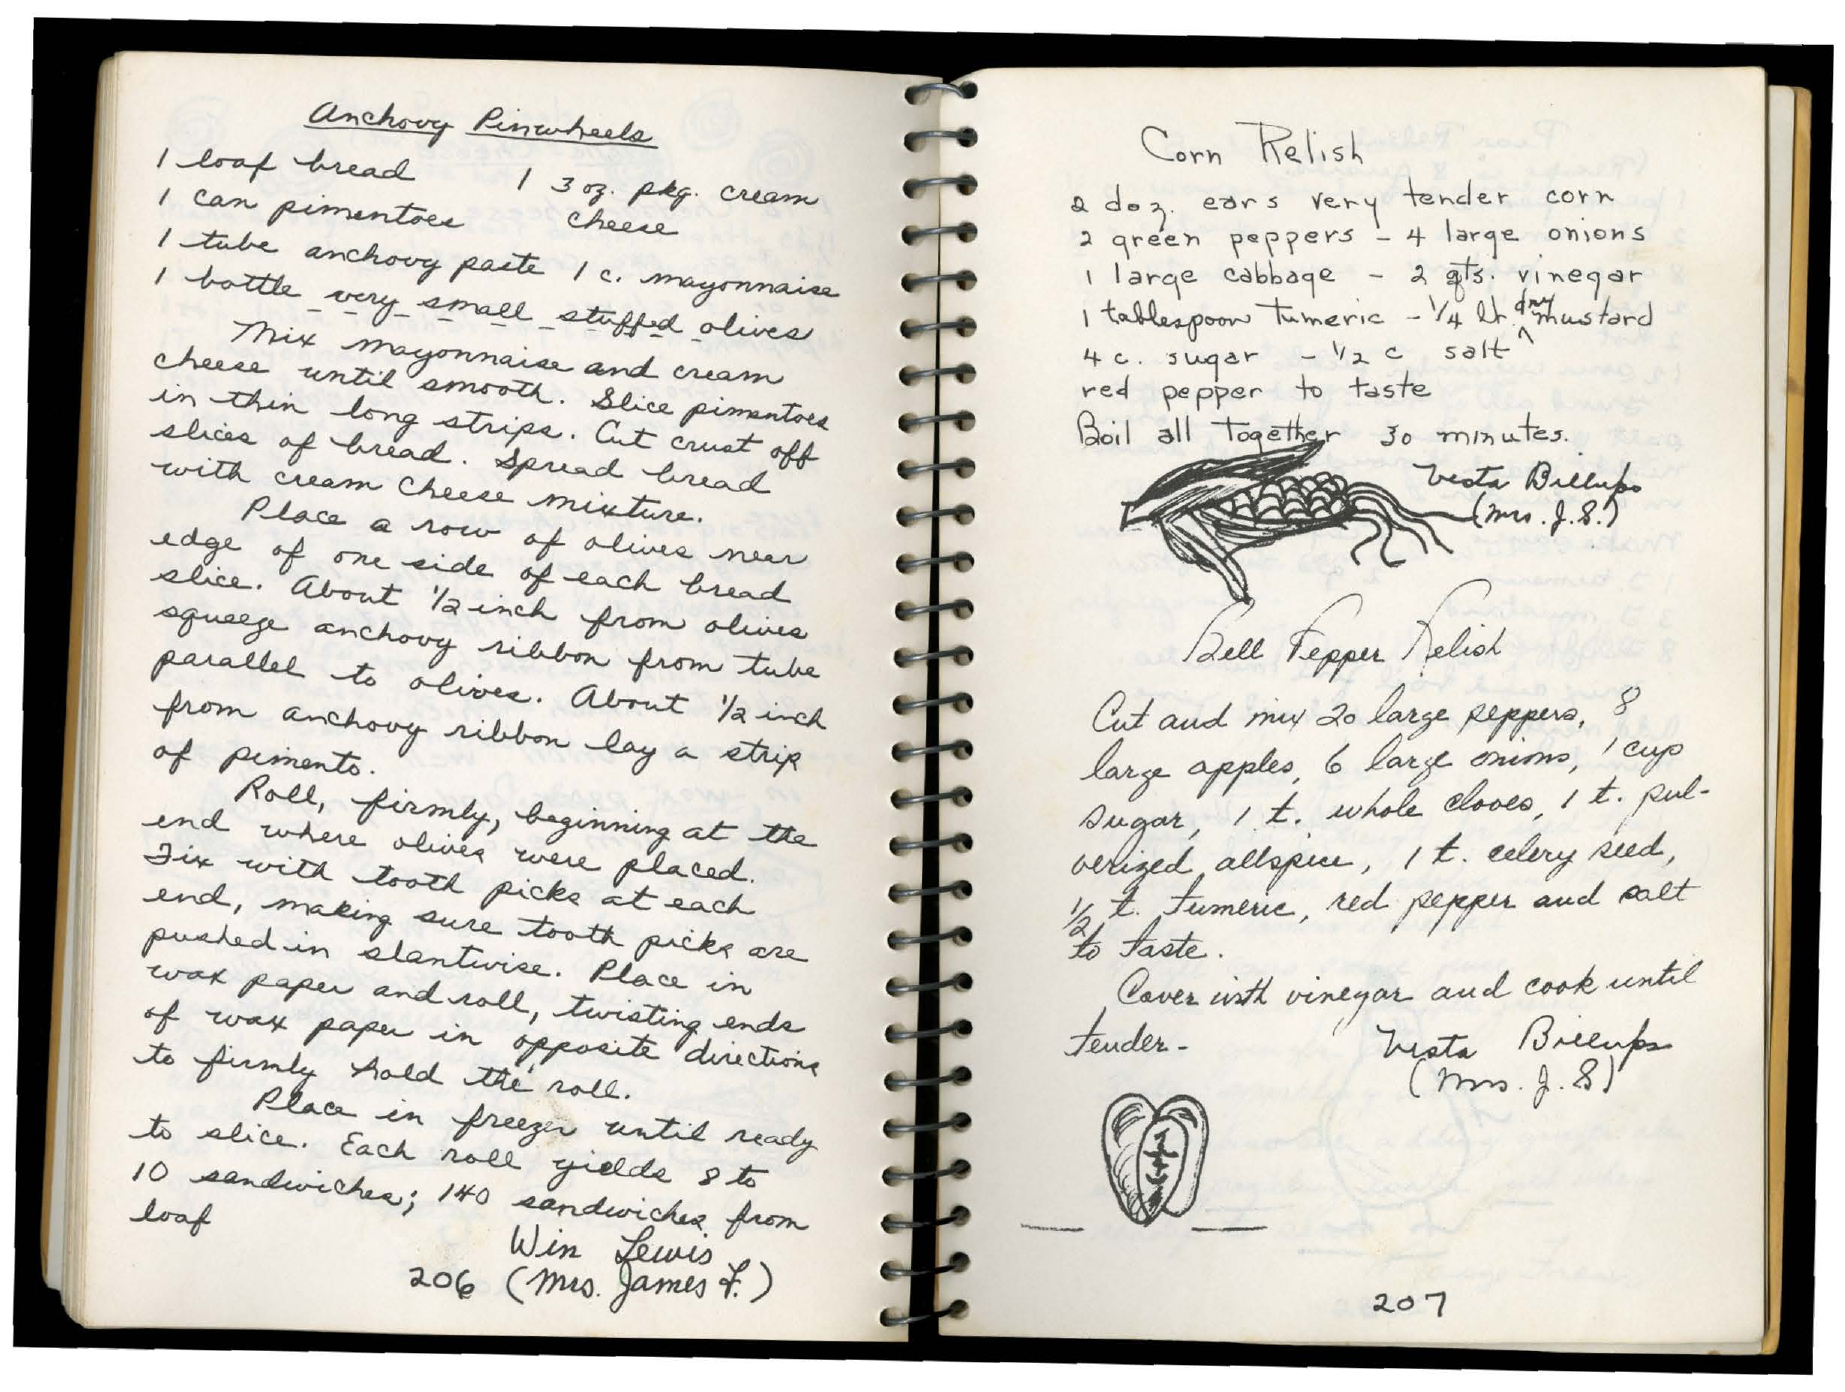 Anchovy Pinwheels
1 loaf bread 1 3 oz. pkg. cream
1 can pimentoes cheese
1 tube anchovy paste 1 c. mayonnaise
1 bottle very small stuffed olives
Mix mayonnaise and cream
cheese until smooth. Slice pimentoes
in thin long strips. Cut crust off
slices of bread. Spread bread
with cream cheese mixture.
Place a row of olives near
edge of one side of each bread
slice. About 1/2 inch from olives
squeeze anchovy ribbon from tube
parallel to olives. About 1/2 inch
from anchovy ribbon lay a strip
of pimento.
Roll, firmly, beginning at the
end where olives were placed.
Fix with tooth picks at each
end, making sure tooth picks are
pushed in slantwise. Place in
wax paper and roll, twisting ends
of wax paper in opposite directions
to firmly hold the roll.
Place in freezer until ready
to slice. Each roll yields 8 to
10 sandwiches; 140 sandwiches from
loaf
Win Lewis
206 (Mrs. James F.)
Corn Relish
2 doz. ears very tender corn
2 green peppers - 4 large onions
1 large cabbage - 2 qts. vinegar
1 tablespoon Tumeric - 1/4 lb. dry mustard
4 c. sugar - 1/2 c salt
red pepper to taste
Boil all together 30 minutes.
Vesta Billups
(Mrs. J. S.)
Bell Pepper Relish
Cut and mix 20 large peppers, 8
large apples, 6 large onions, 1 cup
sugar, 1 t. whole cloves, 1 t. pul-
verized allspice, 1 t. celery seed,
1/2 t. tumeric, red pepper and salt
to taste.
Cover with vinegar and cook until
tender-
Vesta Billups
(Mrs. J. S)
207